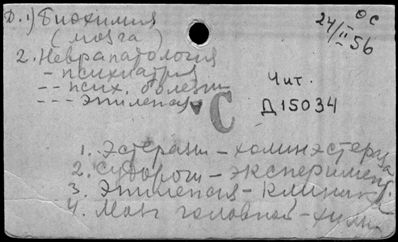 D. 1) Биохимия
(мозга)
ОС
24/II 56
2. Невропатология
- психиатрия
-- псих. болезни
--- эпилепсия
C
Чит.
Д15034
1. Эстеразы - холинэстераза
2. Судороги - эксперимент.
3. Эпилепсия - клиника
4. Мозг головной - химия